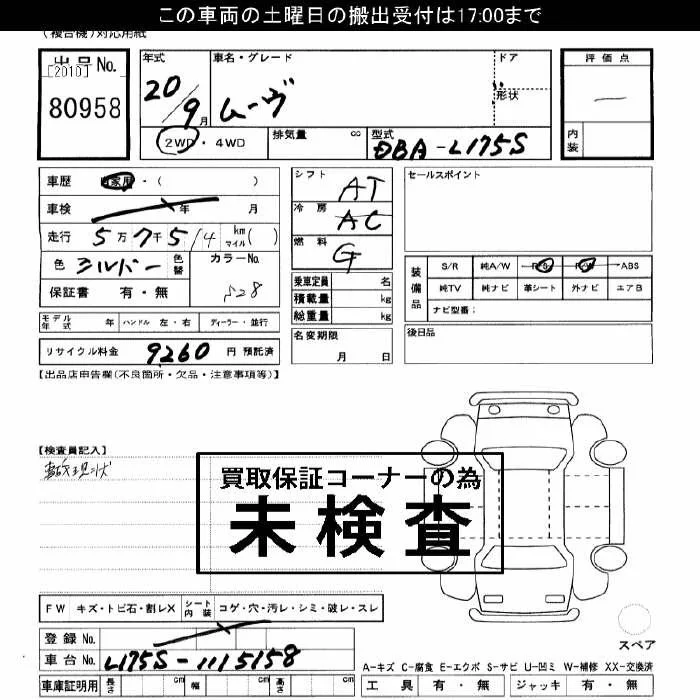 この車両の土曜日の搬出受付は17:00まで
(複合機)対応用紙
出品No.
[2010]
80958
年式 車名・グレード ドア
20/9月 ムーヴ 形状
2WD・4WD 排気量 cc 型式 DBA-L175S
評価点
―
内装
車歴 自家用・( )
車検 年 月
走行 5万7千514 km マイル( )
色 シルバー 色替 カラーNo.
保証書 有・無 S28
モデル年式 年 ハンドル 左・右 ディーラー・並行
リサイクル料金 9260 円 預託済
シフト AT
冷房 AC
燃料 G
乗車定員 名
積載量 kg
総重量 kg
名変期限
月 日
セールスポイント
装備品
S/R 純A/W P/S P/W ABS
純TV 純ナビ 革シート 外ナビ エアB
ナビ型番:
後日品
【出品店申告欄(不良箇所・欠品・注意事項等)】
【検査員記入】
現状
買取保証コーナーの為
未検査
FW キズ・トビ石・割レX シート内装 コゲ・穴・汚レ・シミ・破レ・スレ
登録No.
車台No. L175S-1115158
車庫証明用 長さ cm 幅 cm 高さ cm
スペア
A-キズ C-腐食 E-エクボ S-サビ U-凹ミ W-補修 XX-交換済
工具 有・無 ジャッキ 有・無